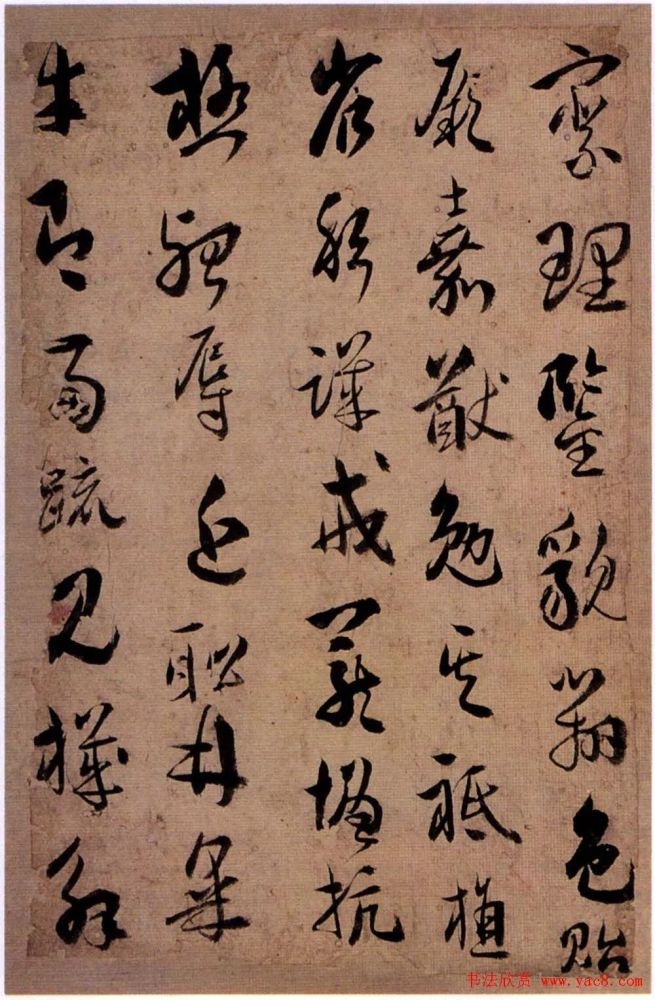 察理鑒貌辨色貽
厥嘉猷勉其祗植
省躬譏戒寵增抗
極殆辱近耻林皋
幸即兩疏見機解
书法欣赏 www.yac8.com